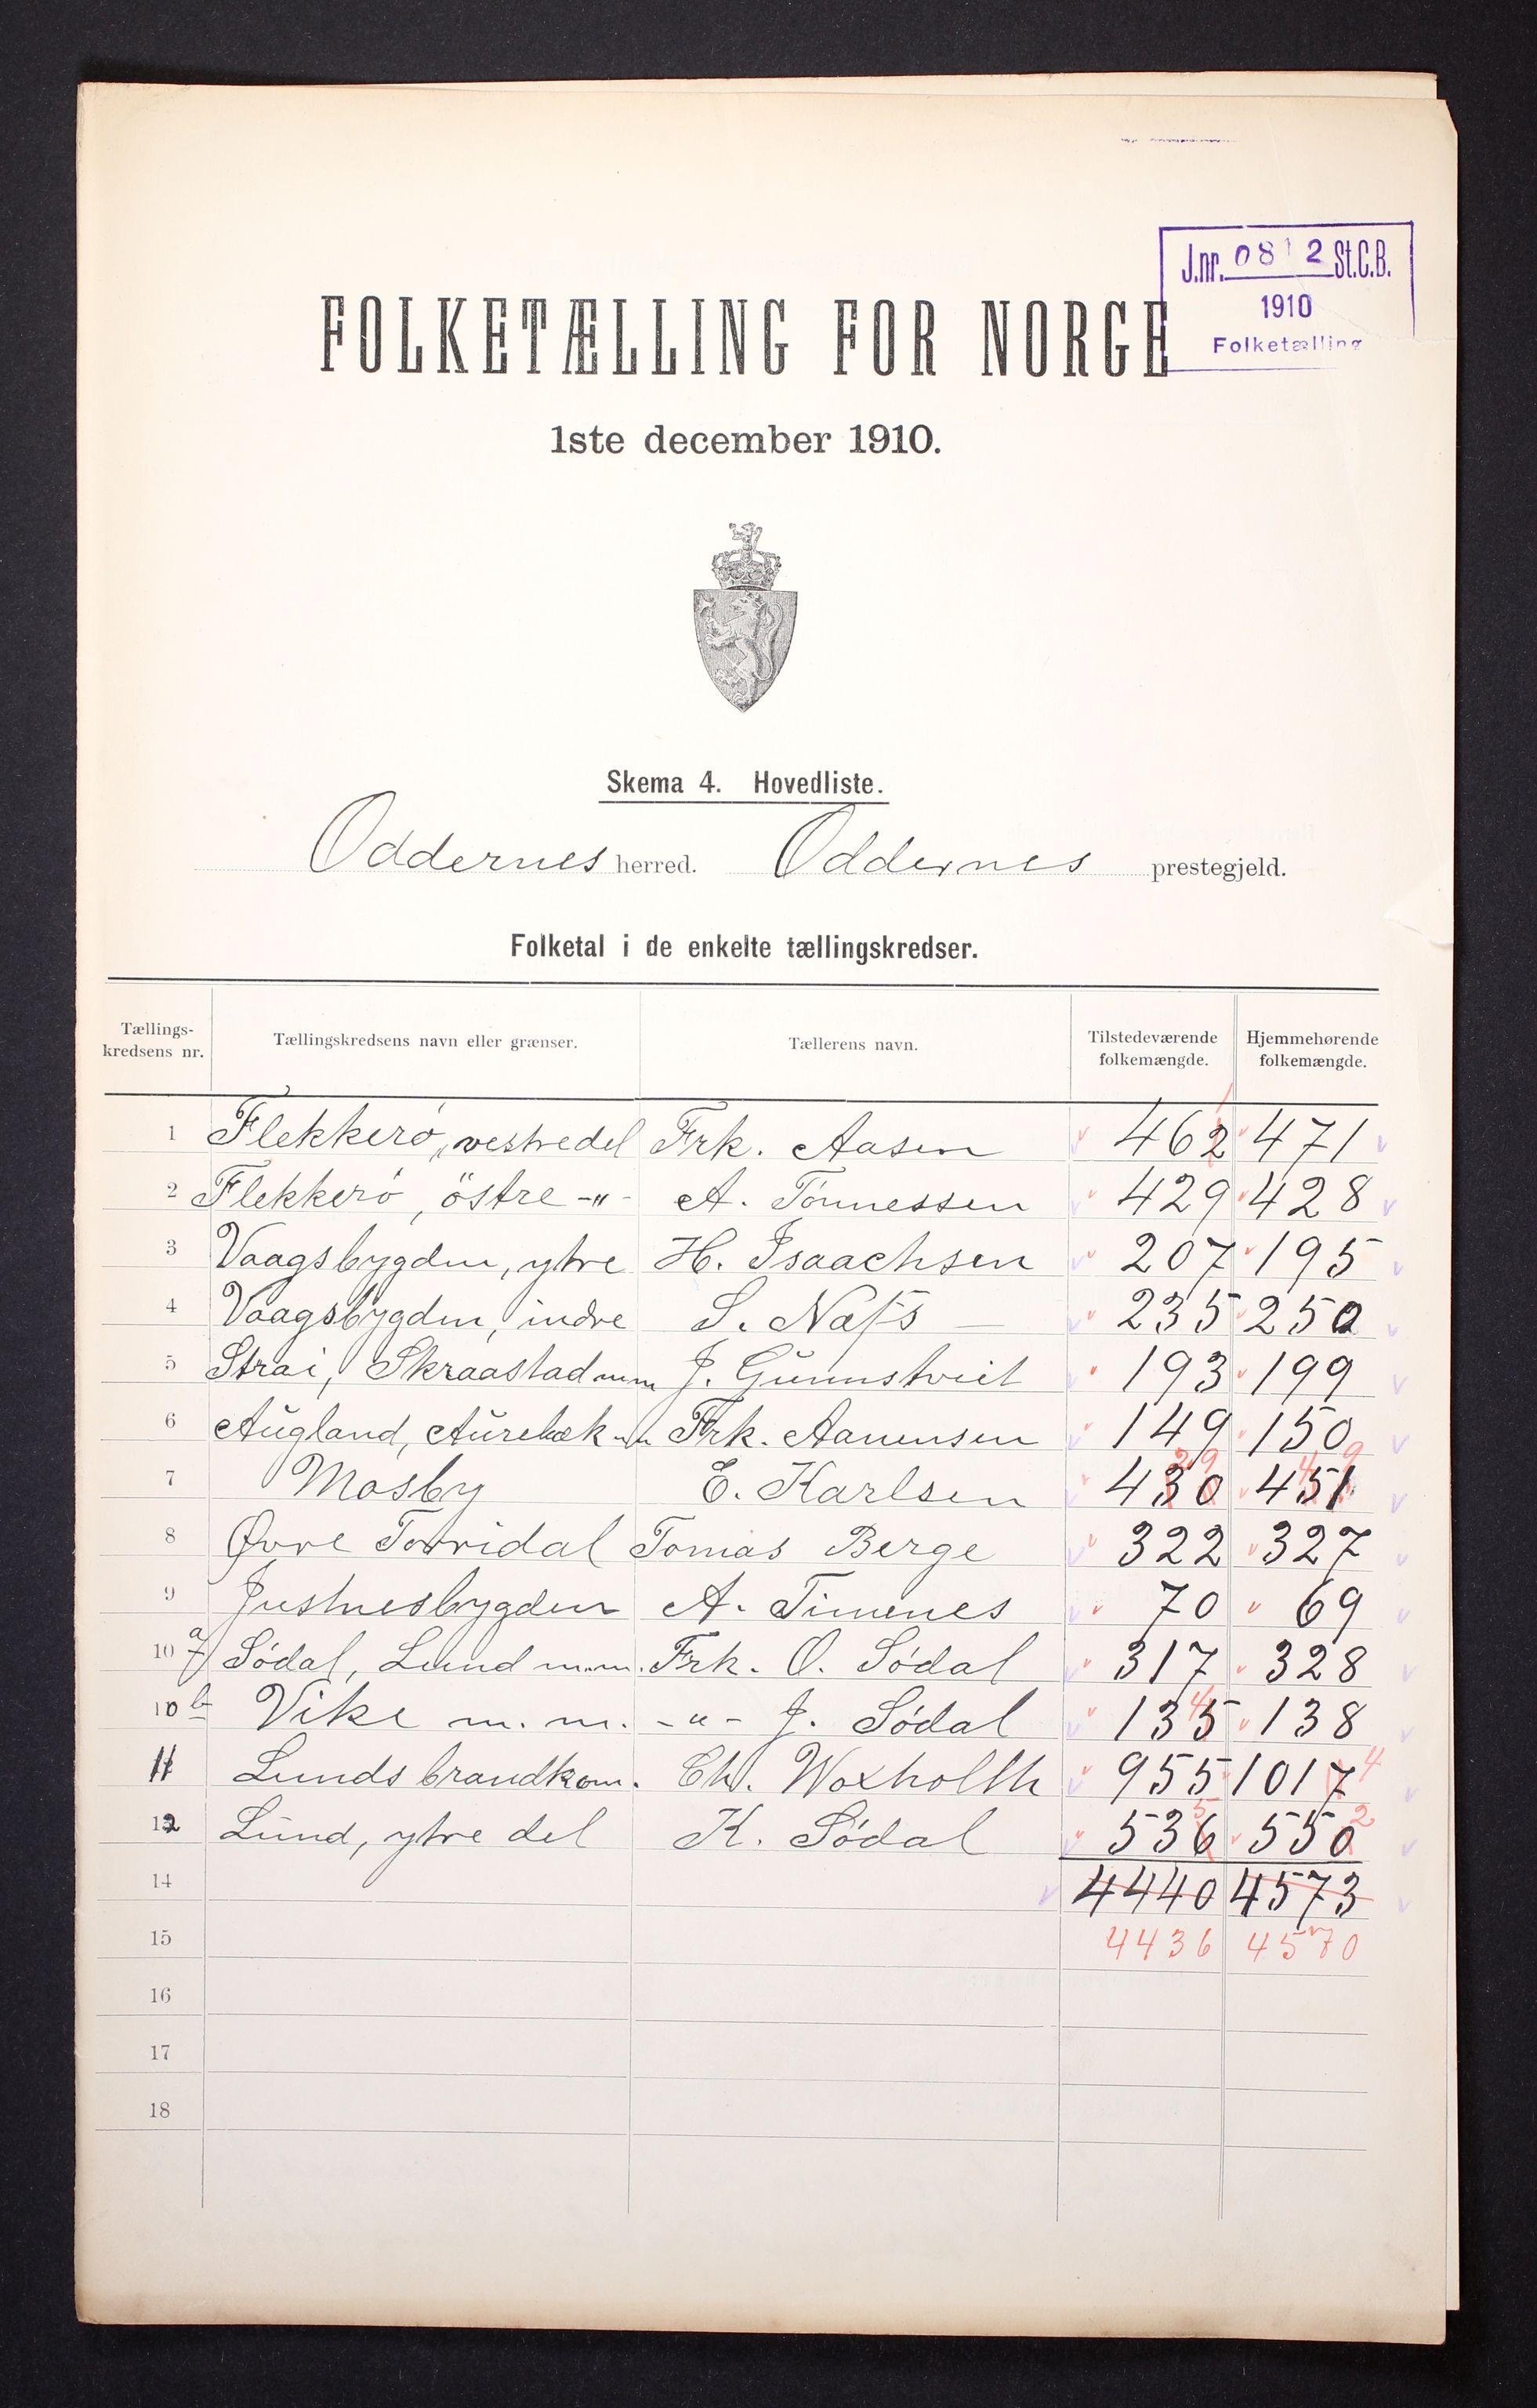 J.nr. 0812 St.C.B.
1910
Folketælling
FOLKETÆLLING FOR NORGE
1ste december 1910.
Skema 4. Hovedliste.
Oddernes herred. Oddernes prestegjeld.
Folketal i de enkelte tællingskredser.
Tællings-kredsens nr. Tællingskredsens navn eller grænser. Tællerens navn. Tilstedeværende folkemængde. Hjemmehørende folkemængde.
1 Flekkerö, vestre del Frk. Aasen 462 1 471
2 Flekkerö, östre -"- A. Tönnessen 429 428
3 Vaagsbygden, ytre H. Isaachsen 207 195
4 Vaagsbygden, indre S. 235 250
5 Strai, Skraastad m m J. Gumstveit 193 199
6 Augland, Aurebæk Frk. Aanensen 149 150
7 Mosby E. Karlsen 430 29 451 4 9
8 Øvre Torridal Tomas Berge 322 327
9 Justnesbygden A. Timenes 70 69
10 a Södal, Lund m.m. Frk. O. Södal 317 328
10 b Vike m. m. -"- J. Södal 135 4 138
11 Lunds brandkom. Ch. Woxholth 955 1017 4
12 Lund, ytre del K. Södal 536 5 550 2
14 4440 4573
15 4436 4570
16
17
18